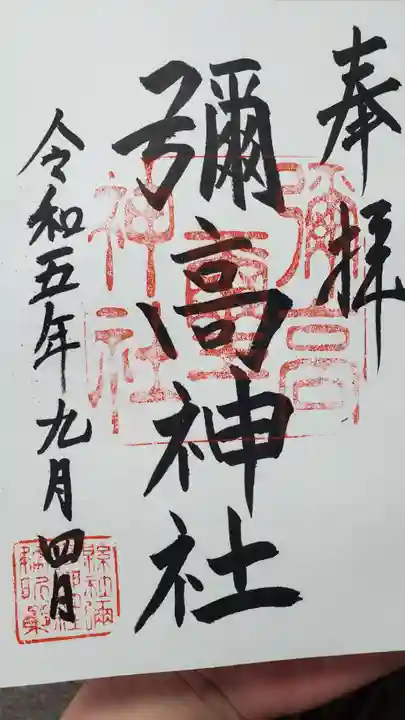 奉拝
彌高神社
令和五年九月四日
彌高
神社